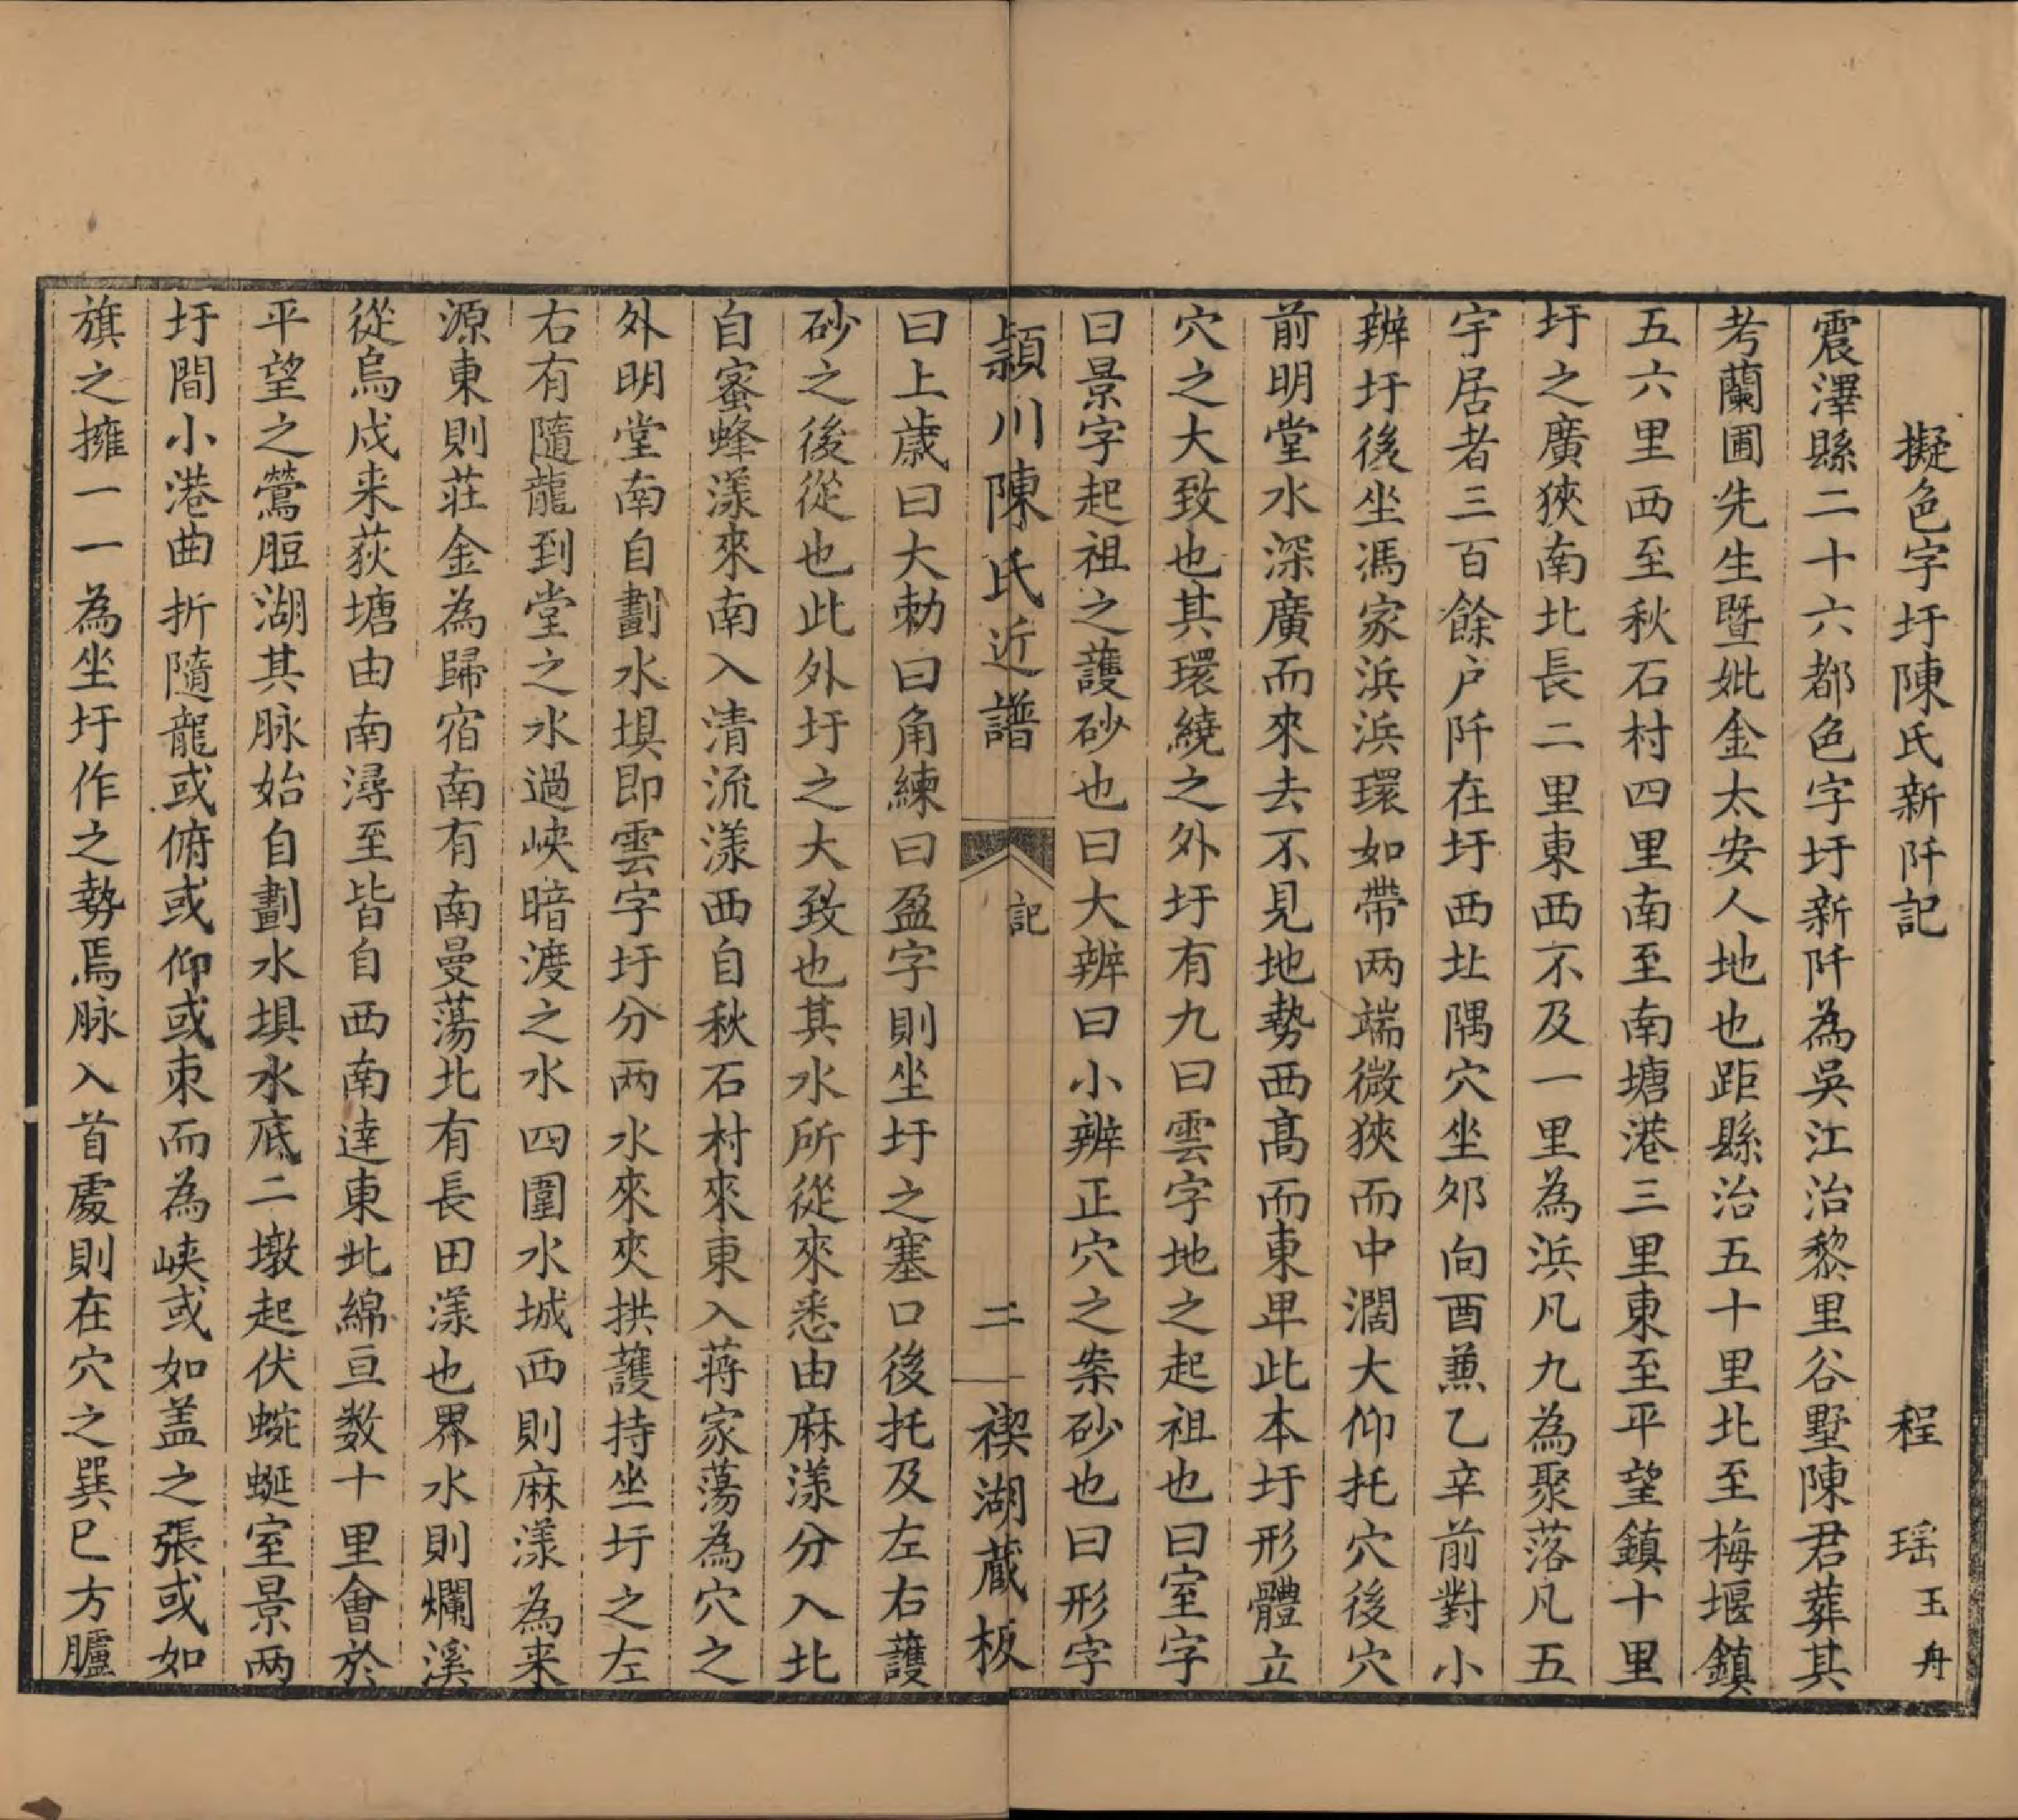 擬色字圩陳氏新阡記　程瑶玉舟
震澤縣二十六都色字圩新阡為吳江治黎里谷墅陳君葬其
考蘭圃先生暨妣金太安人地也距縣治五十里北至梅堰鎮
五六里西至秋石村四里南至南塘港三里東至平望鎮十里
圩之廣狹南北長二里東西不及一里為浜凡九為聚落凡五
宇居者三百餘户阡在圩西北隅穴坐夘向酉兼乙辛前對小
辨圩後坐馮家浜浜環如帶两端微狹而中濶大仰托穴後穴
前明堂水深廣而來去不見地勢西高而東卑此本圩形體立
穴之大致也其環繞之外圩有九曰雲字地之起祖也曰室字
曰景字起祖之護砂也曰大辨曰小辨正穴之案砂也曰形字
潁川陳氏近譜　記　二　禊湖蔵板
曰上歲曰大勅曰角練曰盈字則坐圩之塞口後托及左右護
砂之後從也此外圩之大致也其水所從來悉由麻漾分入北
自蜜蜂漾來南入清流漾西自秋石村來東入蔣家蕩為穴之
外明堂南自劃水埧即雲字圩分两水來夾拱護持坐圩之左
右有隨龍到堂之水過峽暗渡之水四圍水城西則麻漾為来
源東則莊金為歸宿南有南曼蕩北有長田漾也界水則爛溪
從烏戍来荻塘由南潯至皆自西南達東北綿亘数十里會於
平望之鶯脰湖其脉始自劃水埧水底二墩起伏蜿蜒室景两
圩間小港曲折隨龍或俯或仰或束而為峡或如盖之張或如
旗之擁一一為坐圩作之勢焉脉入首處則在穴之巽巳方臚